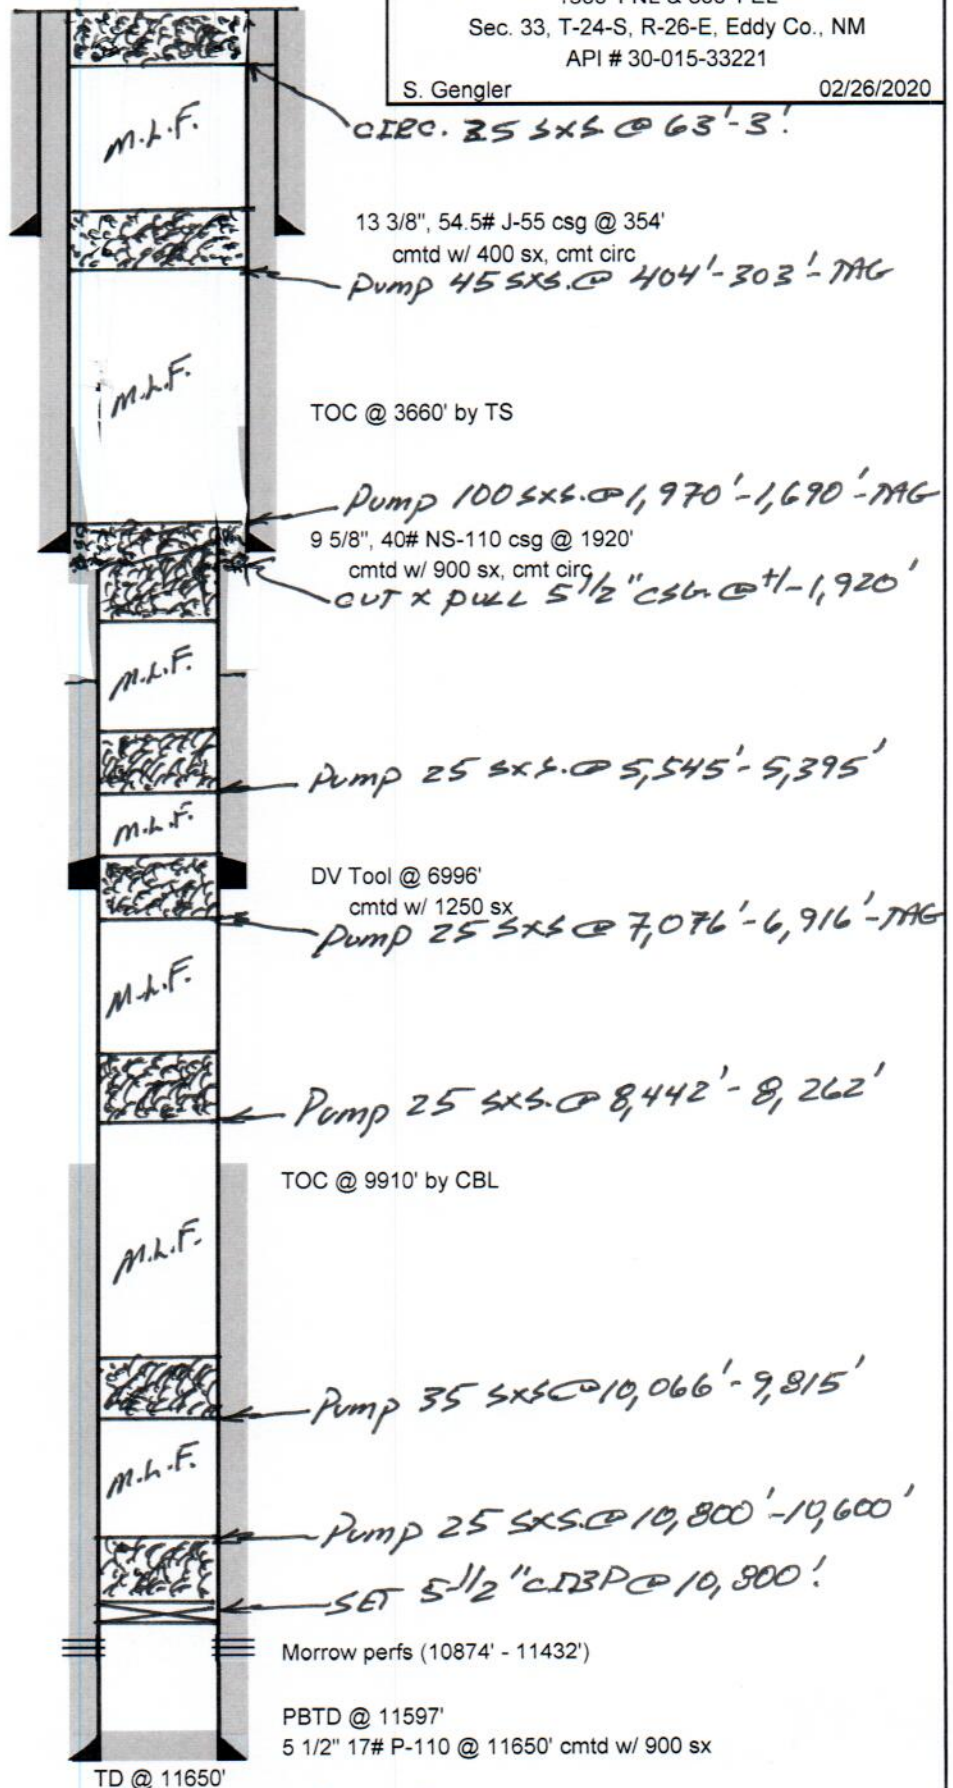 Sec. 33, T-24-S, R-26-E, Eddy Co., NM
API # 30-015-33221
S. Gengler 02/26/2020
CIRC. 35 SXS. @ 63'-3'.
M.L.F.
13 3/8", 54.5# J-55 csg @ 354'
cmtd w/ 400 sx, cmt circ
PUMP 45 SXS. @ 404'-303'-TAG
M.L.F.
TOC @ 3660' by TS
PUMP 100 SXS. @ 1,970'-1,690'-TAG
9 5/8", 40# NS-110 csg @ 1920'
cmtd w/ 900 sx, cmt circ
CUT X PULL 5 1/2" CSG. @ +/-1,920'
M.L.F.
PUMP 25 SXS. @ 5,545'-5,395'
M.L.F.
DV Tool @ 6996'
cmtd w/ 1250 sx
PUMP 25 SXS @ 7,076'-6,916'-TAG
M.L.F.
PUMP 25 SXS. @ 8,442'-8,262'
TOC @ 9910' by CBL
M.L.F.
PUMP 35 SXS @ 10,066'-9,815'
M.L.F.
PUMP 25 SXS. @ 10,800'-10,600'
SET 5 1/2" CIBP @ 10,800'.
Morrow perfs (10874' - 11432')
PBTD @ 11597'
5 1/2" 17# P-110 @ 11650' cmtd w/ 900 sx
TD @ 11650'